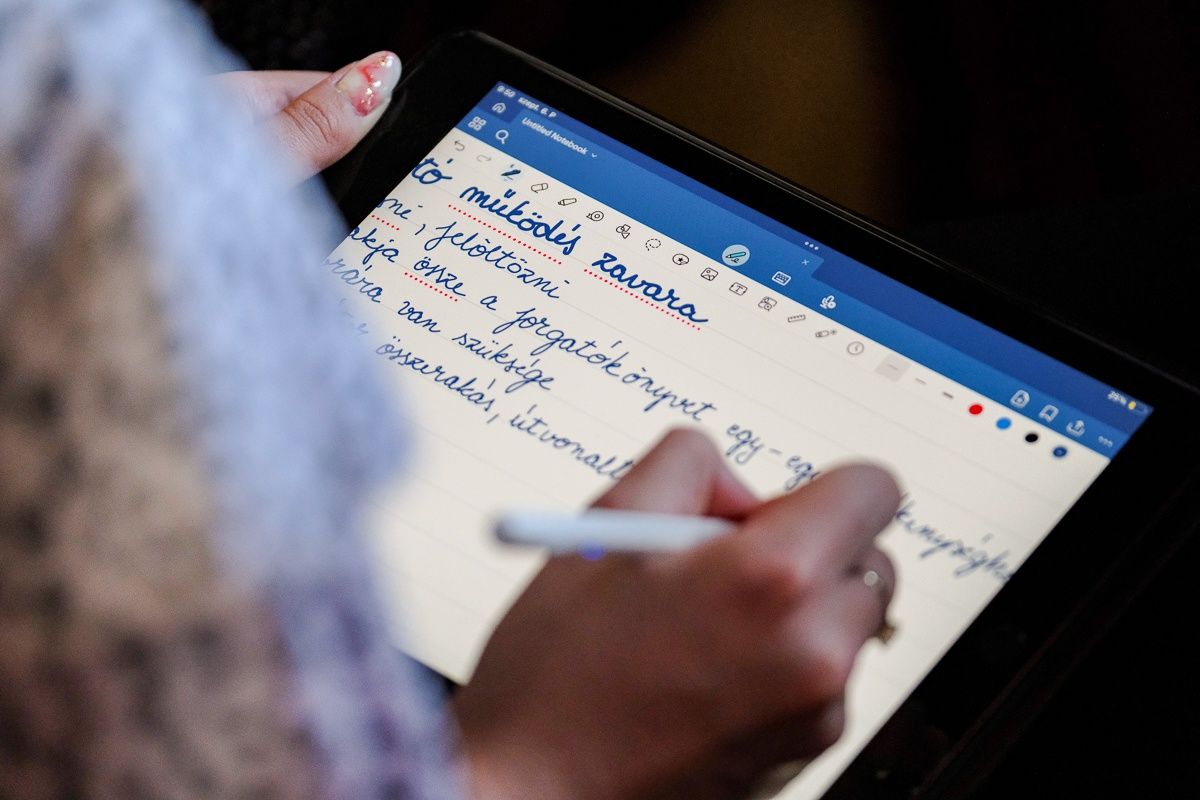 9:50 szept. 6. P
25%
Untitled Notebook
tó működés zavara
ni, felöltözni
akja össze a forgatókönyvet egy-egy
van szüksége
összerakás,